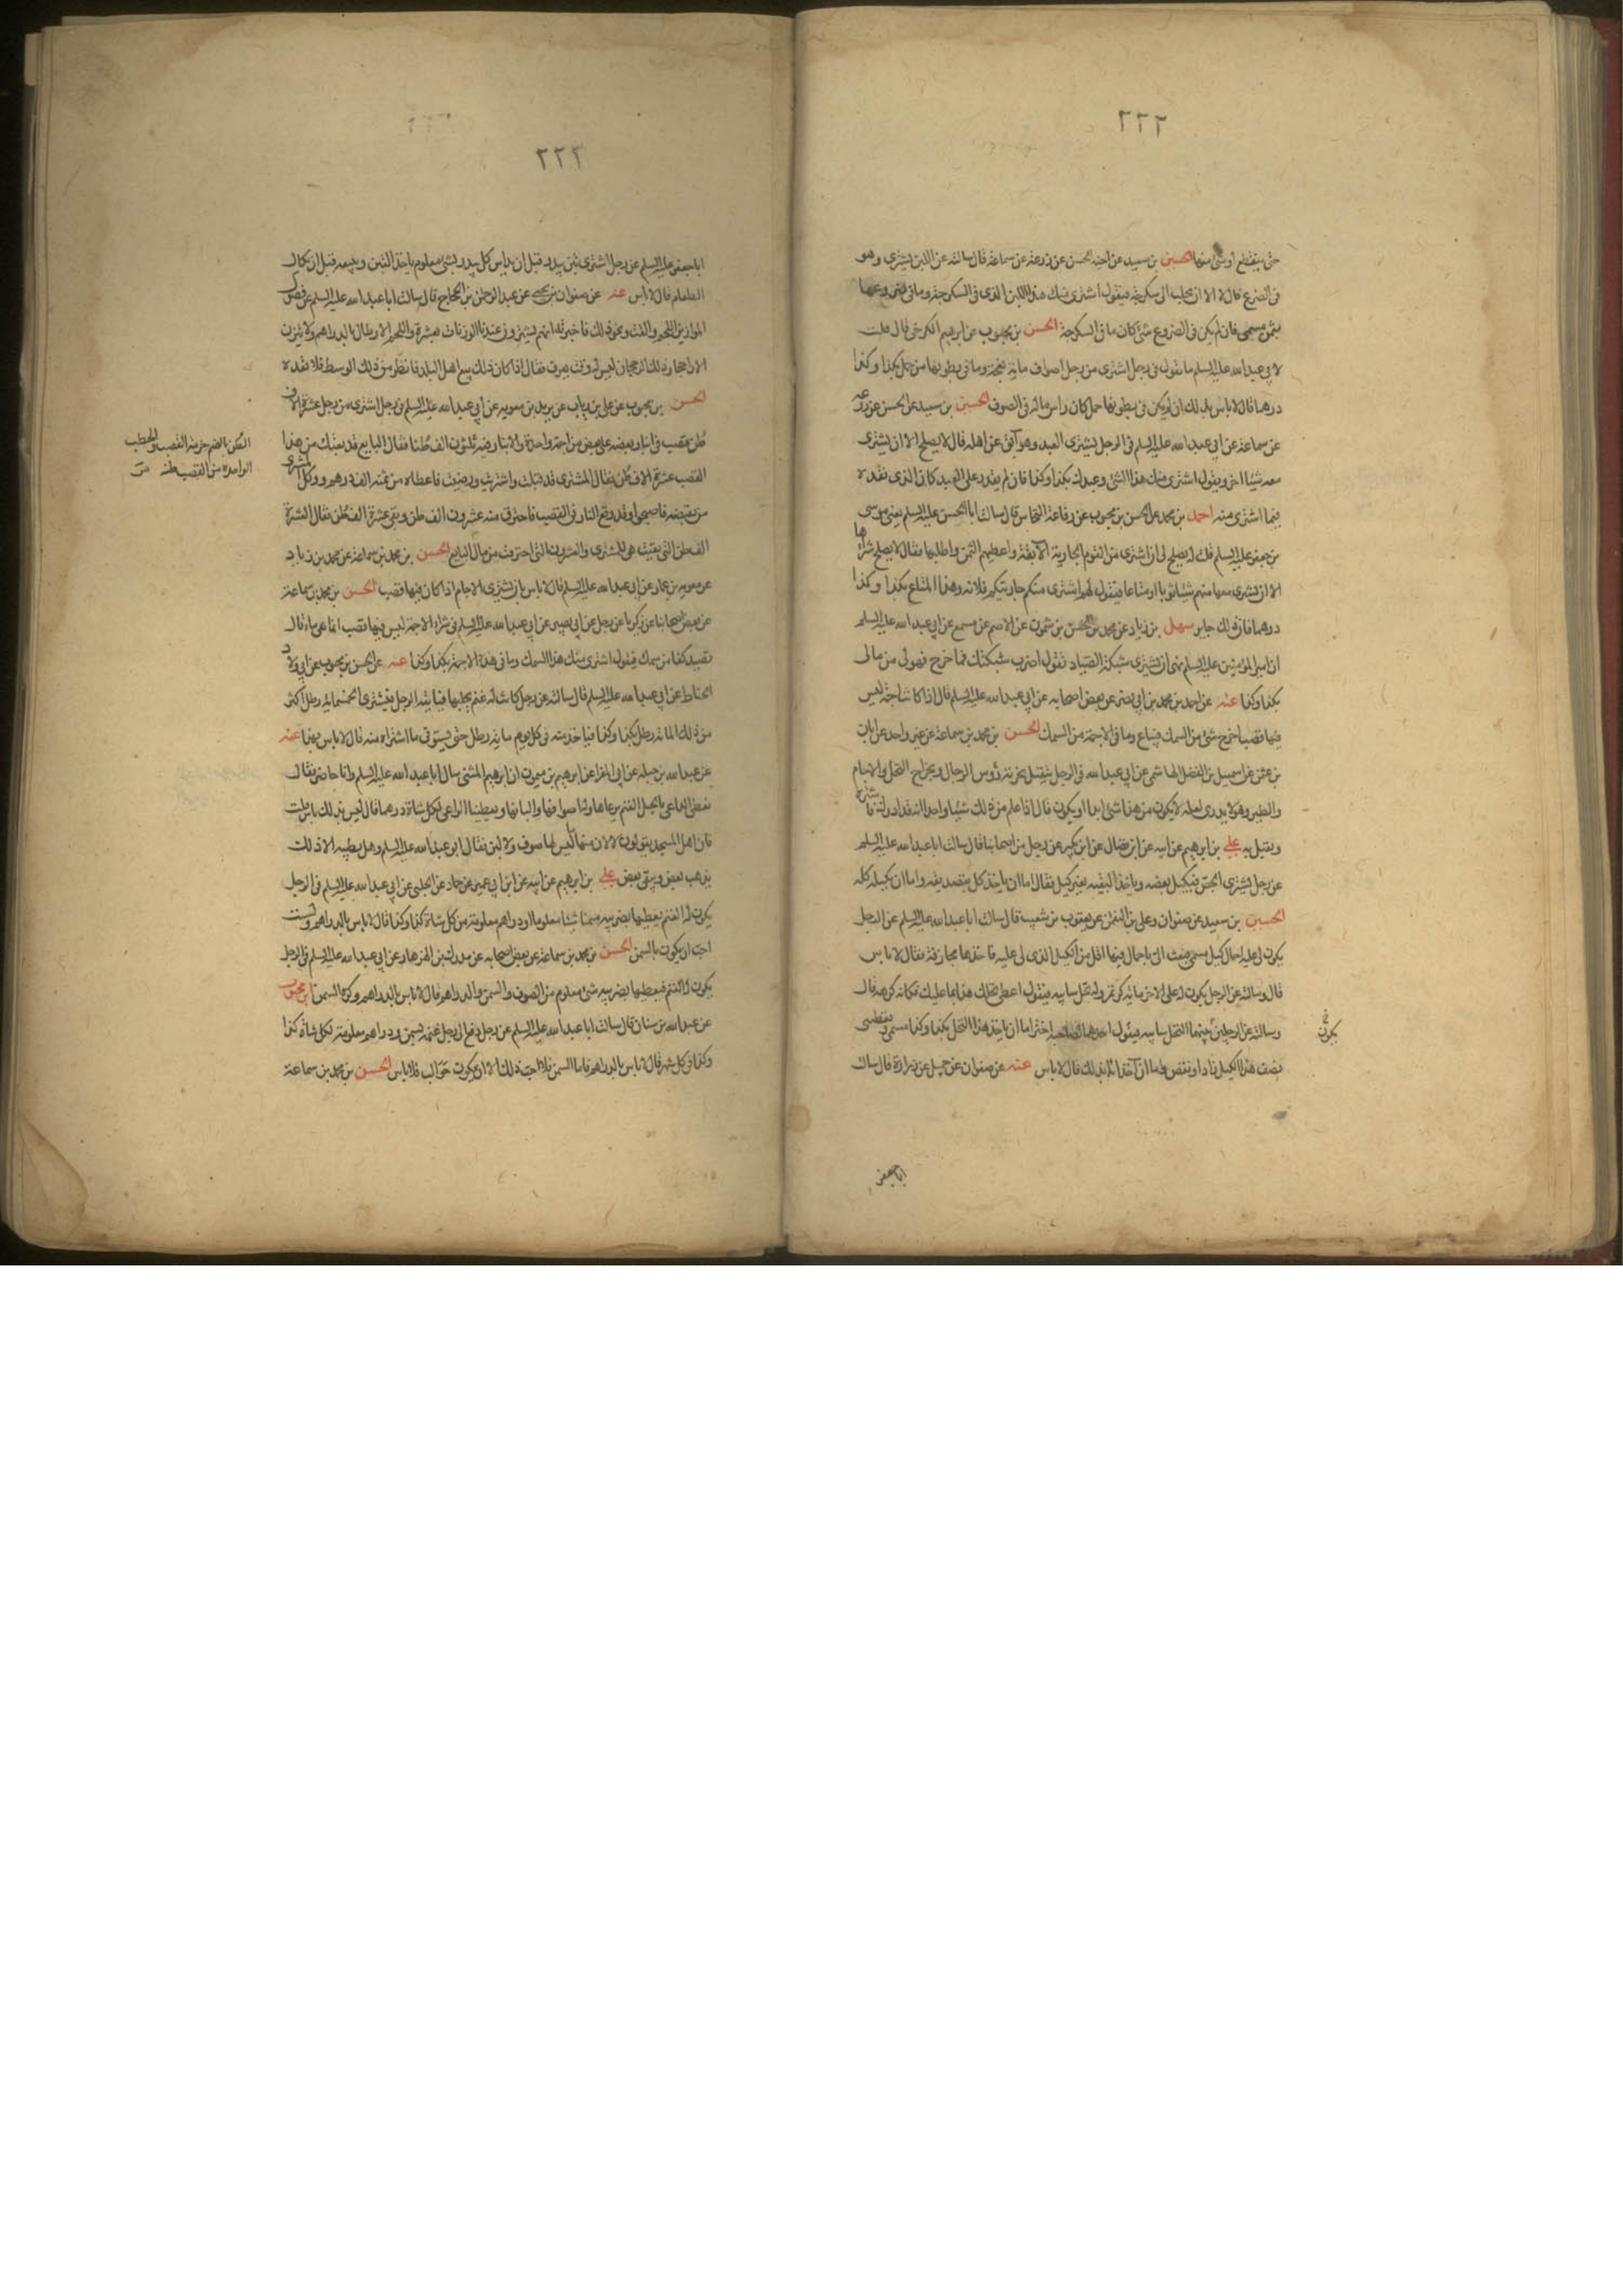 ٢٢٢
حتى ينقطع او شئ منها الحسين بن سعيد عن اخيه الحسن عن زرعة عن سماعة قال سالته عن اللبن يشترى وهو
فى الضرع قال لا الا ان يحلب الى سكرجة فيقول اشترى منك هذا اللبن الذى فى السكرجة وما فى ضروعها
بثمن مسمى فان لم يكن فى الضروع شئ كان ما فى السكرجة الحسن بن محبوب عن ابرهيم الكرخى قال قلت
لابى عبد الله عليه السلم ما تقول فى رجل اشترى من رجل اصواف مائة نعجة وما فى بطونها من حمل بكذا وكذا
درهما قال لا باس بذلك ان لم يكن فى بطونها حمل كان راس ماله فى الصوف الحسين بن سعيد عن الحسن عن زرعه
عن سماعة عن ابى عبد الله عليه السلم فى الرجل يشترى العبد وهو آبق عن اهله قال لا يصلح الا ان يشترى
معه شيئا اخر ويقول اشترى منك هذا الشئ وعبدك بكذا وكذا فان لم يقدر على العبد كان الذى نقده
فيما اشترى منه احمد بن محمد عن الحسن بن محبوب عن رفاعة النخاس قال سالت ابا الحسن عليه السلم يعنى موسى
بن جعفر عليه السلم قلت له يصلح لى ان اشترى من القوم الجارية الآبقة واعطيهم الثمن واطلبها فقال لا يصلح شراها
الا ان تشترى معها منهم شيئا ثوبا او متاعا فتقول لهم اشترى منكم جاريتكم فلانه وهذا المتاع بكذا وكذا
درهما فان ذلك جايز سهل بن زياد عن محمد بن الحسن بن شمون عن الاصم عن مسمع عن ابى عبد الله عليه السلم
ان امير المؤمنين عليه السلم نهى ان يشترى شبكة الصياد تقول اضرب شبكتك فما خرج فهو لى من مالى
بكذا وكذا عنه عن احمد بن محمد بن ابى نصر عن بعض اصحابه عن ابى عبد الله عليه السلم قال اذا كانت اجمة ليس
فيها قصب اخرج شئ من السمك فيباع وما فى الاجمة من السمك الحسن بن محمد بن سماعة عن غير واحد عن ابان
بن عثمن عن اسمعيل بن الفضل الهاشمى عن ابى عبد الله فى الرجل يتقبل بجزية رؤس الرجال وبخراج النخل والاجام
والطير وهو لا يدرى لعله لا يكون من هذا شئ ابدا او يكون قال اذا علم من ذلك شيئا واحدا انه قد ادرك فاشتره
وتقبل به على بن ابرهيم عن ابيه عن ابن فضال عن ابن بكير عن رجل من اصحابنا قال سالت ابا عبد الله عليه السلم
عن رجل يشترى الجص فيكيل بعضه وياخذ البقيه بغير كيل فقال اما ان ياخذ كل بتصديقه واما ان يكيله كله
الحسين بن سعيد عن صفوان وعلى بن النعمن عن يعقوب بن شعيب قال سالت ابا عبد الله عليه السلم عن الرجل
يكون لى عليه احمال كيل مسمى فيبعث الى باحمال فيها اقل من الكيل الذى لى عليه فاخذها مجازفة فقال لا باس
قال وسالته عن الرجل يكون له على الاخر مائة كر تمر وله نخل فياتيه فيقول اعطنى نخلك هذا بما عليك فكانه كرهه قال
وسالته عن الرجلين بينهما النخل فياتيه فيقول احدهما لصاحبه اختر اما ان تاخذ هذا النخل بكذا وكذا مسمى وتعطينى
نصف هذا الكيل زاد او نقص واما ان آخذ انا بذلك قال لا باس عنه عن صفوان عن جميل عن زرارة قال سالت
يكون خ
ابا جعفر
٢٢٣
ابا جعفر عليه السلم عن رجل اشترى تبن بيدر قبل ان يداس كل بيدر بشئ معلوم ياخذ التبن ويبيعه قبل ان يكال
الطعام قال لا باس عنه عن صفوان بن يحيى عن عبد الرحمن بن الحجاج قال سالت ابا عبد الله عليه السلم عن فضول
الموازين اللحم والقت ونحو ذلك فاخبرته انهم يشترون عندنا الوزنات بعشرة واللحم الارطال بالدراهم ولا يتزن
الا راجحا وذلك الرجحان ليس له وقت يعرف فقال اذا كان ذلك بيع اهل البلد فانظر من ذلك الوسط فلا تعده
الحسن بن محبوب عن على بن رياب عن بريد بن معويه عن ابى عبد الله عليه السلم فى رجل اشترى من رجل عشرة الاف
طن قصب فى انبار بعضه على بعض من اجمة واحدة والانبار فيه ثلثون الف طن فقال البايع قد بعتك من هذا
القصب عشرة الاف طن فقال المشترى قد قبلت واشتريت ورضيت فاعطاه من ثمنه الف درهم ووكل المشترى
من يقبضه فاصبحوا وقد وقع النار فى القصب فاحترق منه عشرون الف طن وبقى عشرة الف طن فقال العشرة
الف طن التى بقيت هى للمشترى والعشرون التى احترقت من مال البايع الحسن بن محمد بن سماعة عن محمد بن زياد
عن معويه بن عمار عن ابى عبد الله عليه السلم قال لا باس بان يشترى الاجام اذا كان فيها قصب الحسن بن محمد بن سماعة
عن بعض اصحابنا عن زكريا عن رجل عن ابى بصير عن ابى عبد الله عليه السلم فى شراء الاجمة ليس فيها قصب انما هى ماء قال
تصيد كفا من سمك فيقول اشترى منك هذا السمك وما فى هذه الاجمة بكذا وكذا عنه عن الحسن بن محبوب عن ابى ولاد
الحناط عن ابى عبد الله عليه السلم قال سالته عن رجل كانت له غنم يحلبها فياتيه الرجل فيشترى الخمسمائة رطل اكثر
من ذلك المائة رطل بكذا وكذا فياخذ منه فى كل يوم مائة رطل حتى يستوفى ما اشتراه منه قال لا باس بهذا عنه
عن عبد الله بن جبله عن ابى المغرا عن ابرهيم بن ميمون ان ابرهيم المثنى سال ابا عبد الله عليه السلم وانا حاضر فقال
نعطى الراعى بالجبل الغنم يرعاها وله اصوافها والبانها ويعطينا الراعى لكل شاة درهما قال ليس بذلك باس فقلت
فان اهل المسجد يقولون لا لان منها ما ليس لها صوف ولا لبن فقال ابو عبد الله عليه السلم وهل يطيبه الا ذلك
يذهب بعض ويبقى بعض على بن ابرهيم عن ابيه عن ابن ابى عمير عن حماد عن الحلبى عن ابى عبد الله عليه السلم فى الرجل
يكون له الغنم يعطيها بضريبه سمنا شيئا معلوما او دراهم معلومة من كل شاة كذا وكذا قال لا باس بالدراهم ولست
احب ان يكون بالسمن الحسن بن محمد بن سماعة عن بعض اصحابه عن مدرك بن الهزهاز عن ابى عبد الله عليه السلم فى الرجل
يكون له الغنم فيعطيها بضريبه شئ معلوم من الصوف والسمن والدراهم قال لا باس بالدراهم وكره السمن ابن محبوب
عن عبد الله بن سنان قال سالت ابا عبد الله عليه السلم عن رجل دفع الى رجل غنمه بسمن ودراهم معلومة لكل شاة كذا
وكذا فى كل شهر قال لا باس بالدراهم فاما السمن فلا احب ذلك الا ان يكون حوالب فلا باس الحسن بن محمد بن سماعة
الطن بالضم حزمة القصب والحطب
الواحدة من القصب طنه ص